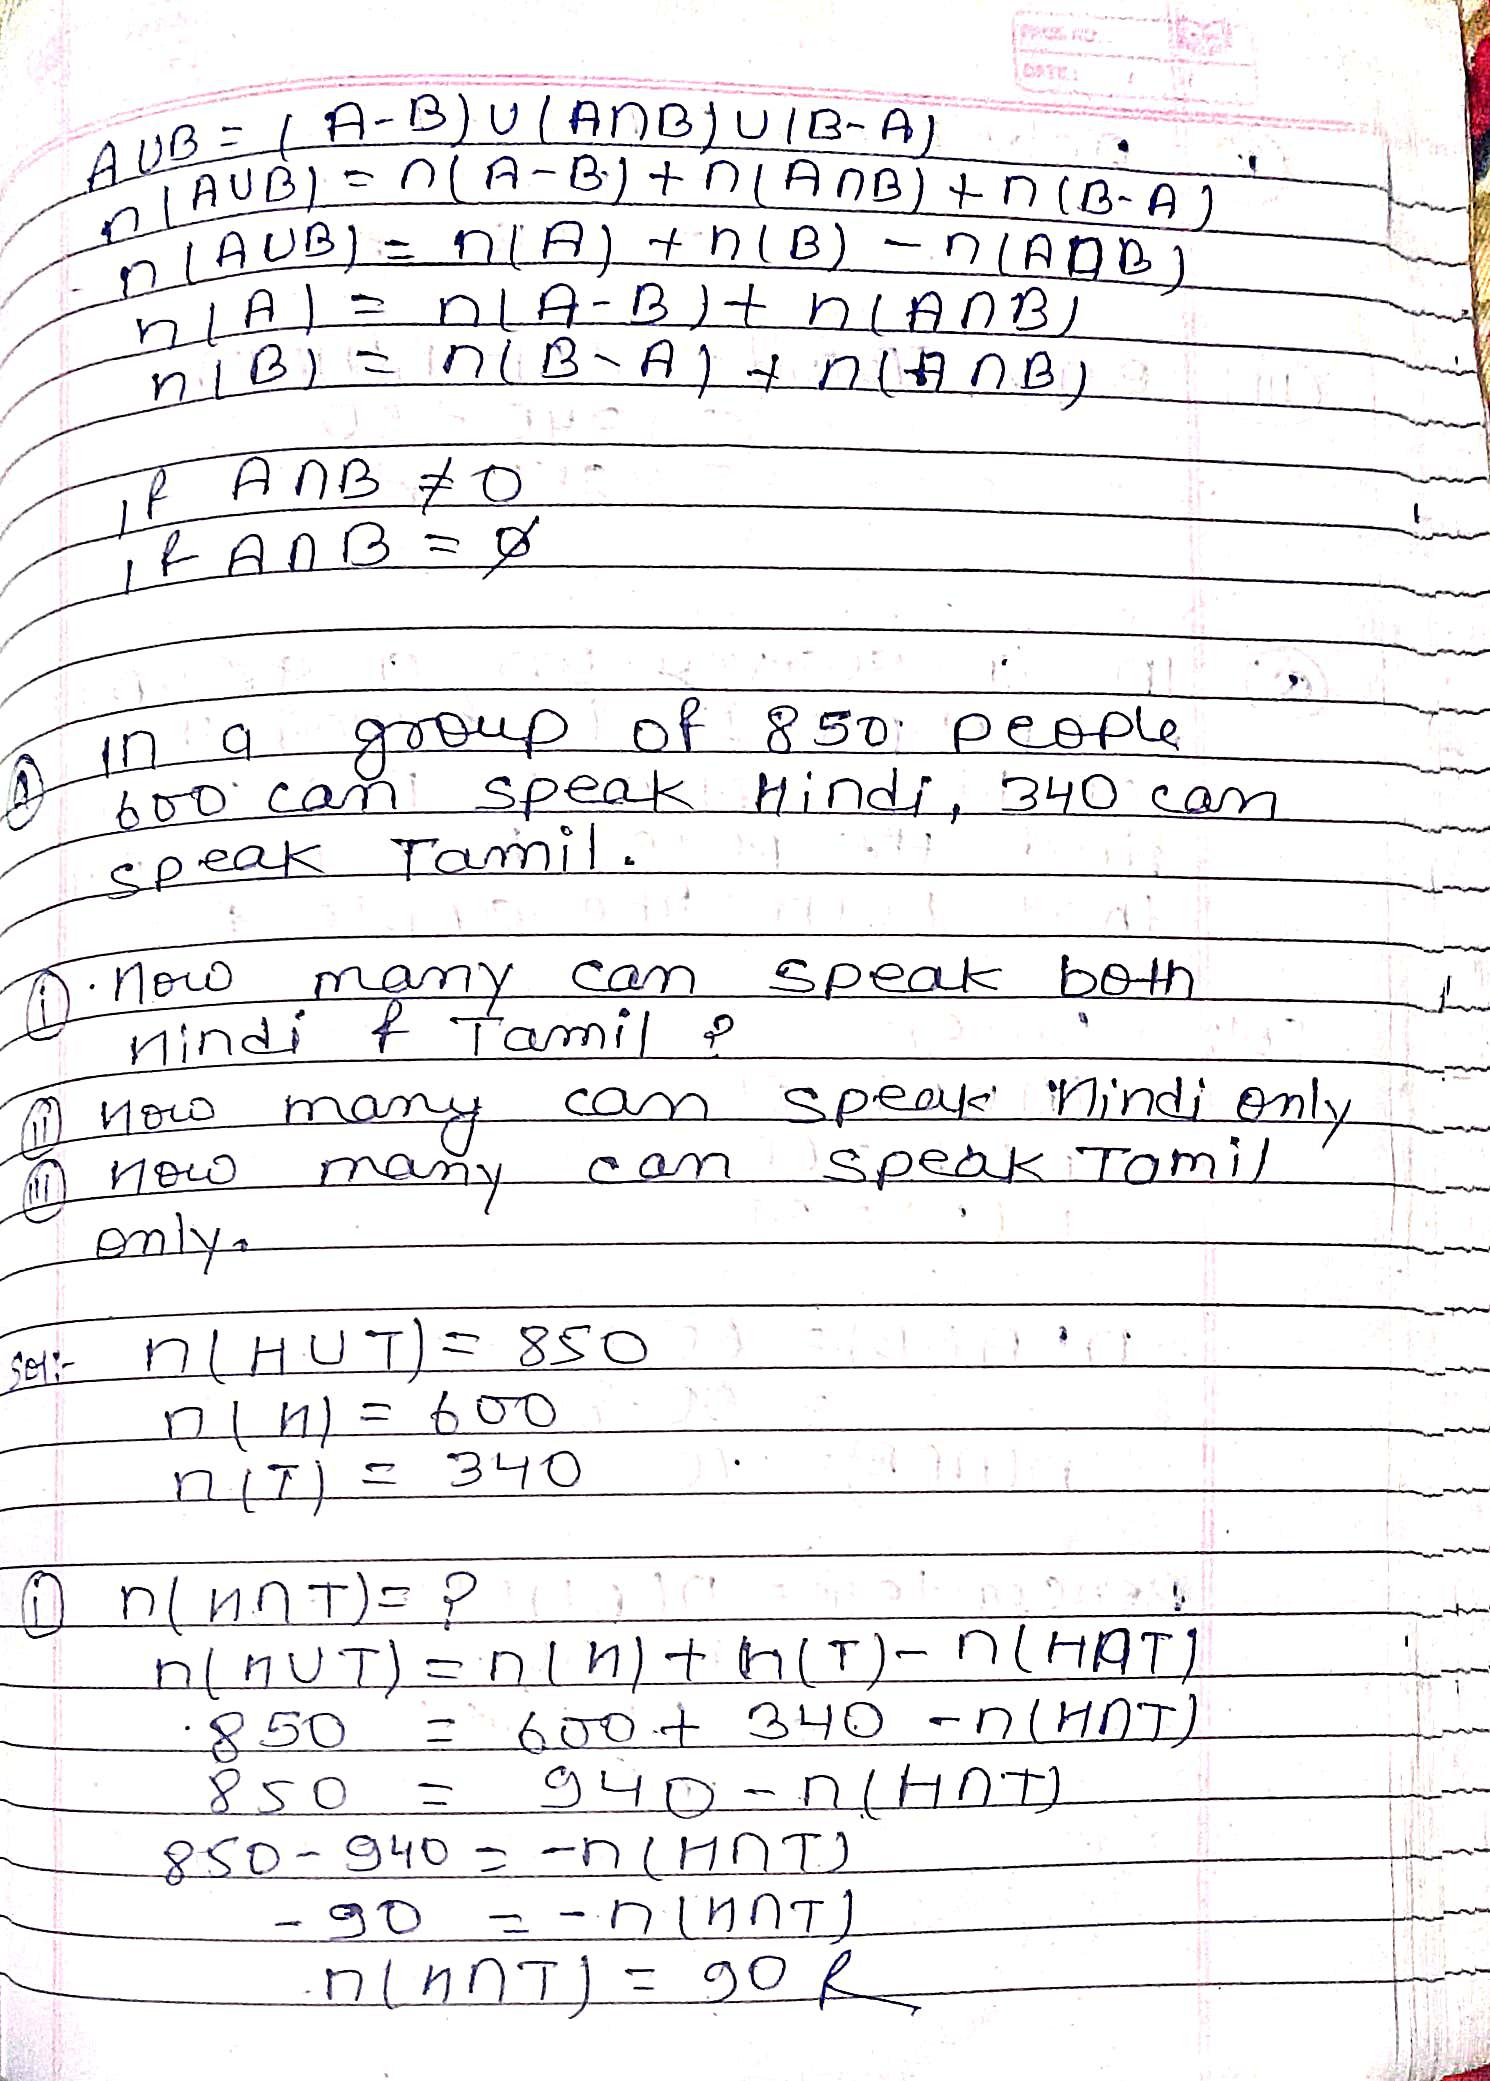 PAGE NO.
DATE:
AUB = (A-B) U (A∩B) U (B-A)
n(AUB) = n(A-B) + n(A∩B) + n(B-A)
n(AUB) = n(A) + n(B) - n(A∩B)
n(A) = n(A-B) + n(A∩B)
n(B) = n(B-A) + n(A∩B)
if A∩B ≠ 0
if A∩B = ∅
in a group of 850 people
600 can speak Hindi, 340 can
speak Tamil.
(i) How many can speak both
Hindi & Tamil ?
(ii) How many can speak Hindi only
(iii) How many can speak Tamil
only.
Sol:- n(HUT) = 850
n(H) = 600
n(T) = 340
(i) n(H∩T) = ?
n(HUT) = n(H) + n(T) - n(H∩T)
850 = 600 + 340 - n(H∩T)
850 = 940 - n(H∩T)
850 - 940 = -n(H∩T)
-90 = -n(H∩T)
n(H∩T) = 90